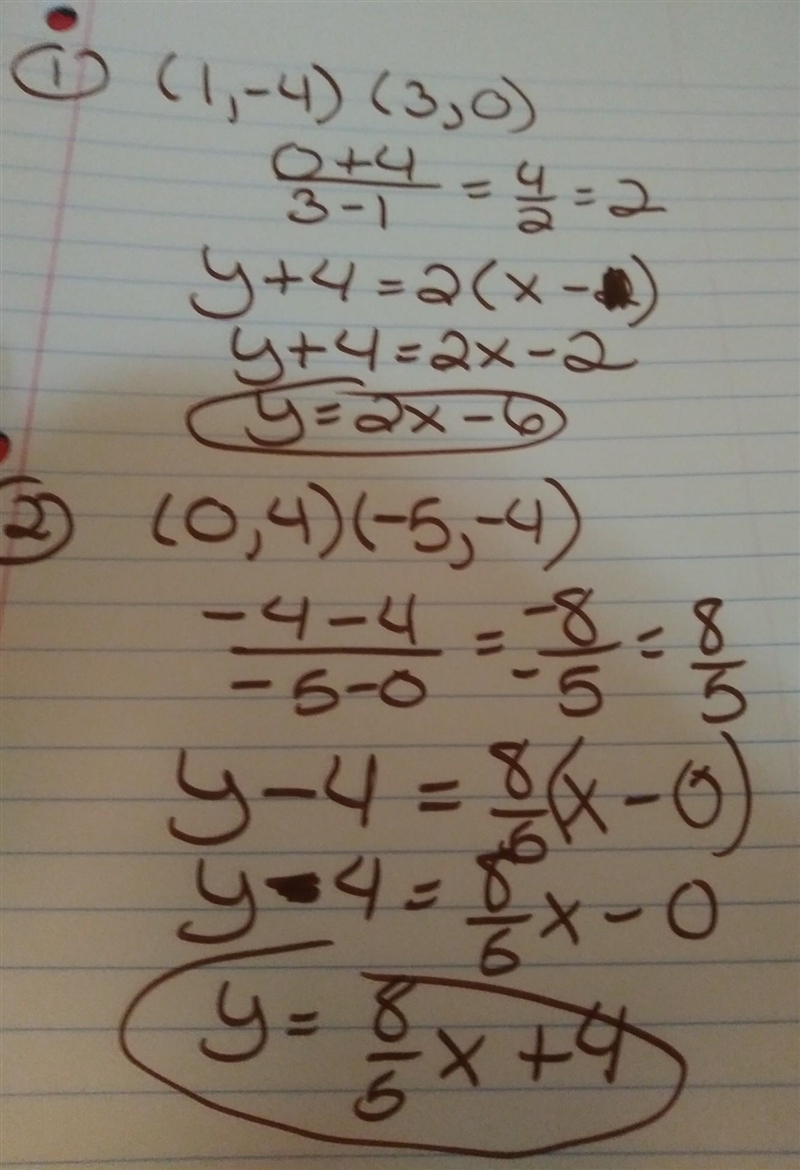 ① (1,-4) (3,0)
0+4/3-1 = 4/2 = 2
y+4=2(x- )
y+4=2x-2
y=2x-6
② (0,4)(-5,-4)
-4-4/-5-0 = -8/-5 = 8/5
y-4=8/5(x-0)
y-4=8/5x-0
y=8/5x+4